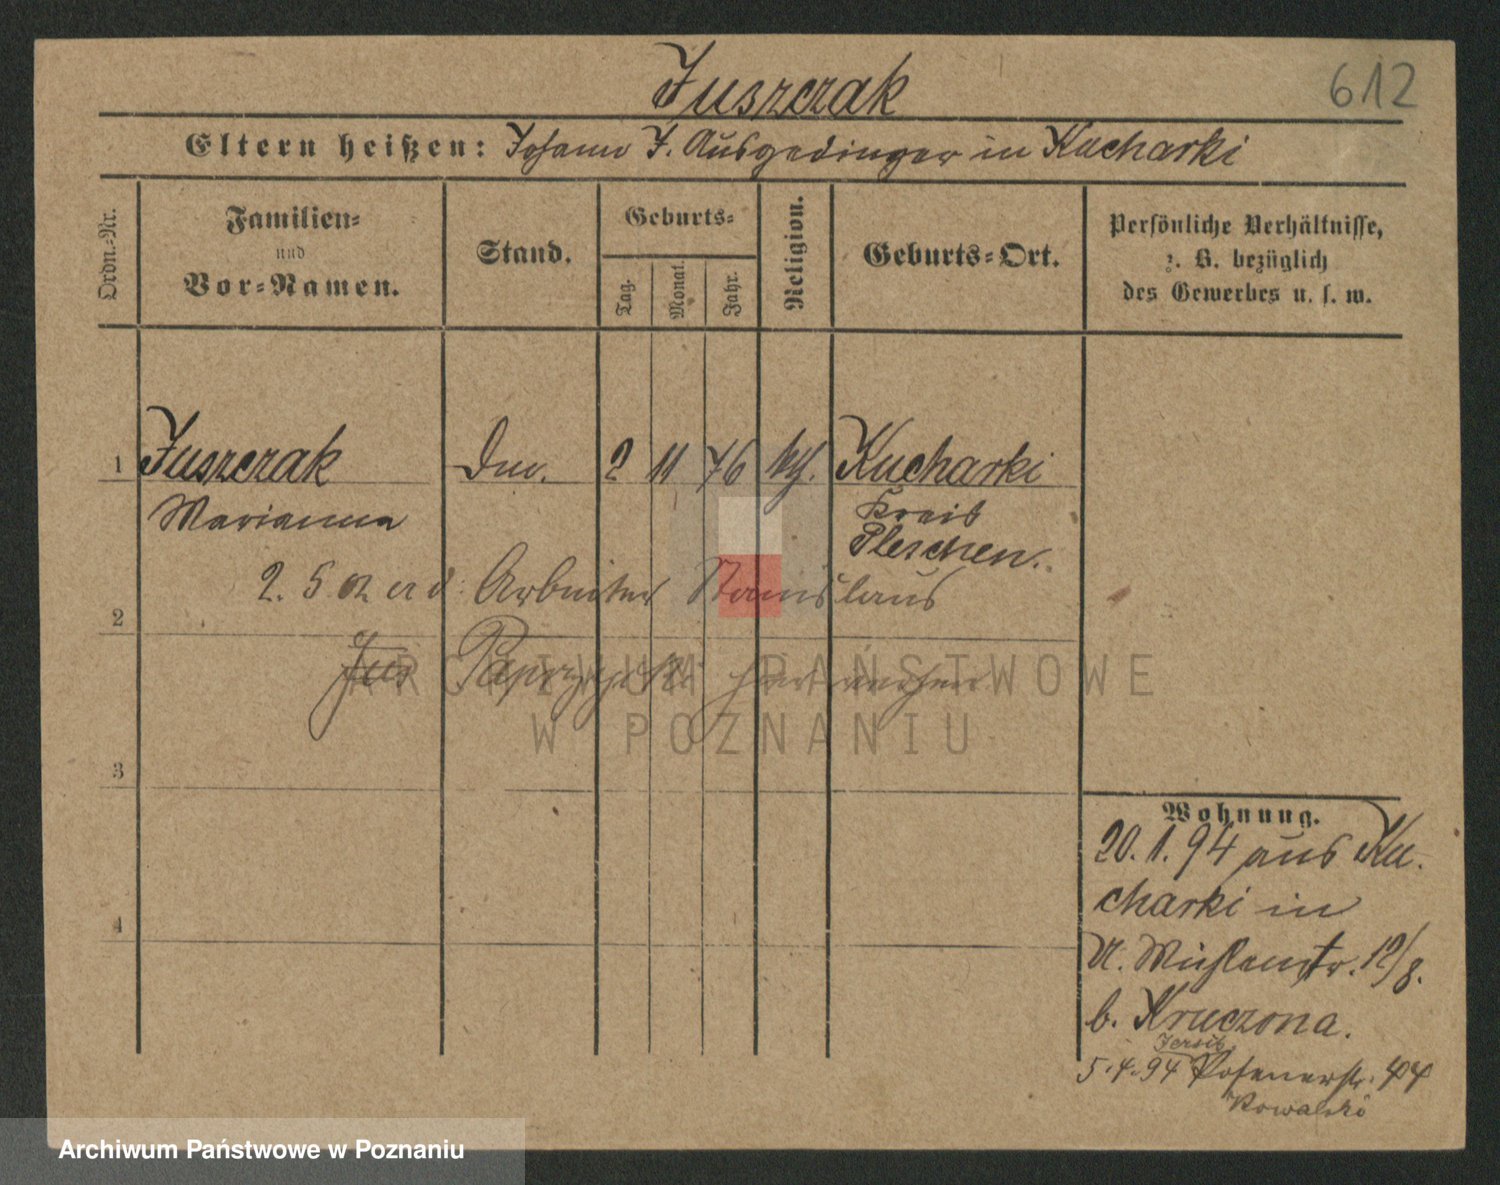 Juszczak
612
Eltern heißen: Johann J. Ausgedinger in Kucharki
Ordn.-Nr.
Familien-
und
Vor-Namen.
Stand.
Geburts-
Tag.
Monat.
Jahr.
Religion.
Geburts-Ort.
Persönliche Verhältnisse,
z. B. bezüglich
des Gewerbes u. s. w.
1 Juszczak 2 11 76 kth. Kucharki
Marianna Kreis
Pleschen.
2. 5. Arbeiter Stanislaus
2
Jus
3
4
Wohnung.
20. 1. 94 aus Ku-
charki in
U. Mühlenstr. 12/8.
b. Kruczona.
Jersitz
5. 4. 94 Posenerstr. 44
Kowalski
ARCHIWUM PAŃSTWOWE
W POZNANIU
Archiwum Państwowe w Poznaniu